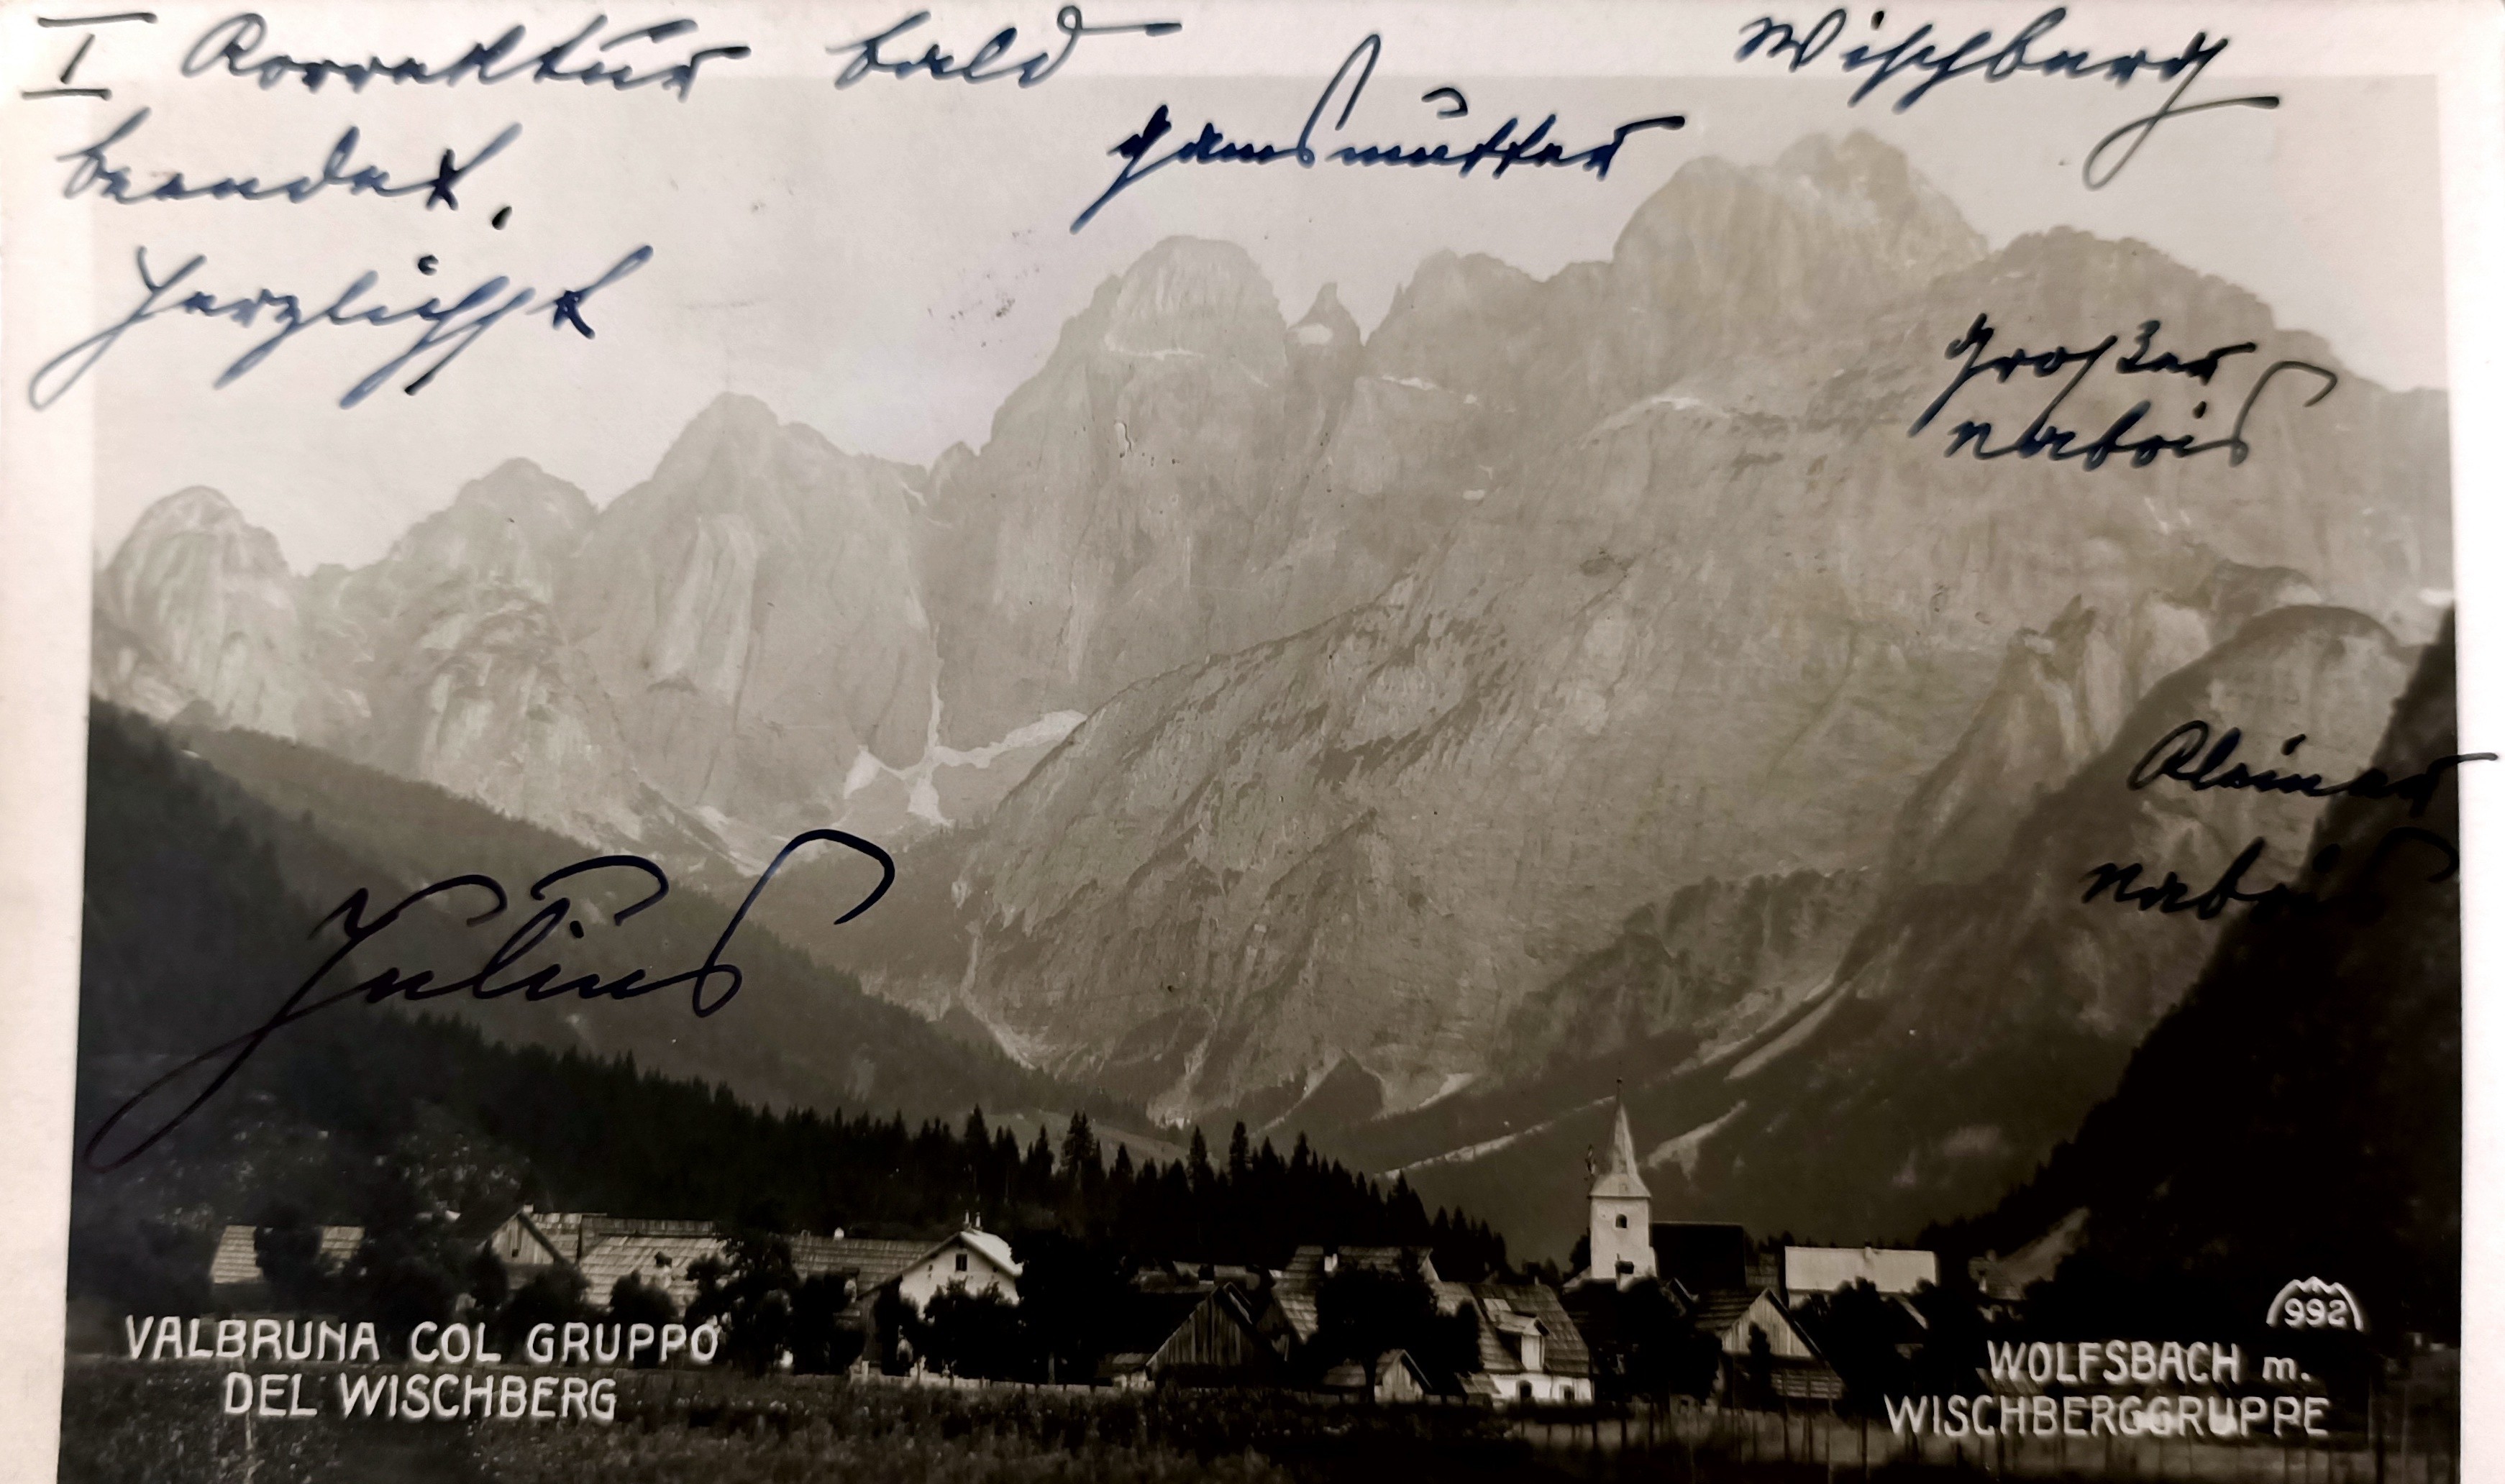 I Korrektur bald
beendet.
Herzlichst
Gamsmutter
Wischberg
Großer
Nabois
Kleiner
Nabois
Julius
VALBRUNA COL GRUPPO
DEL WISCHBERG
992
WOLFSBACH m.
WISCHBERGGRUPPE